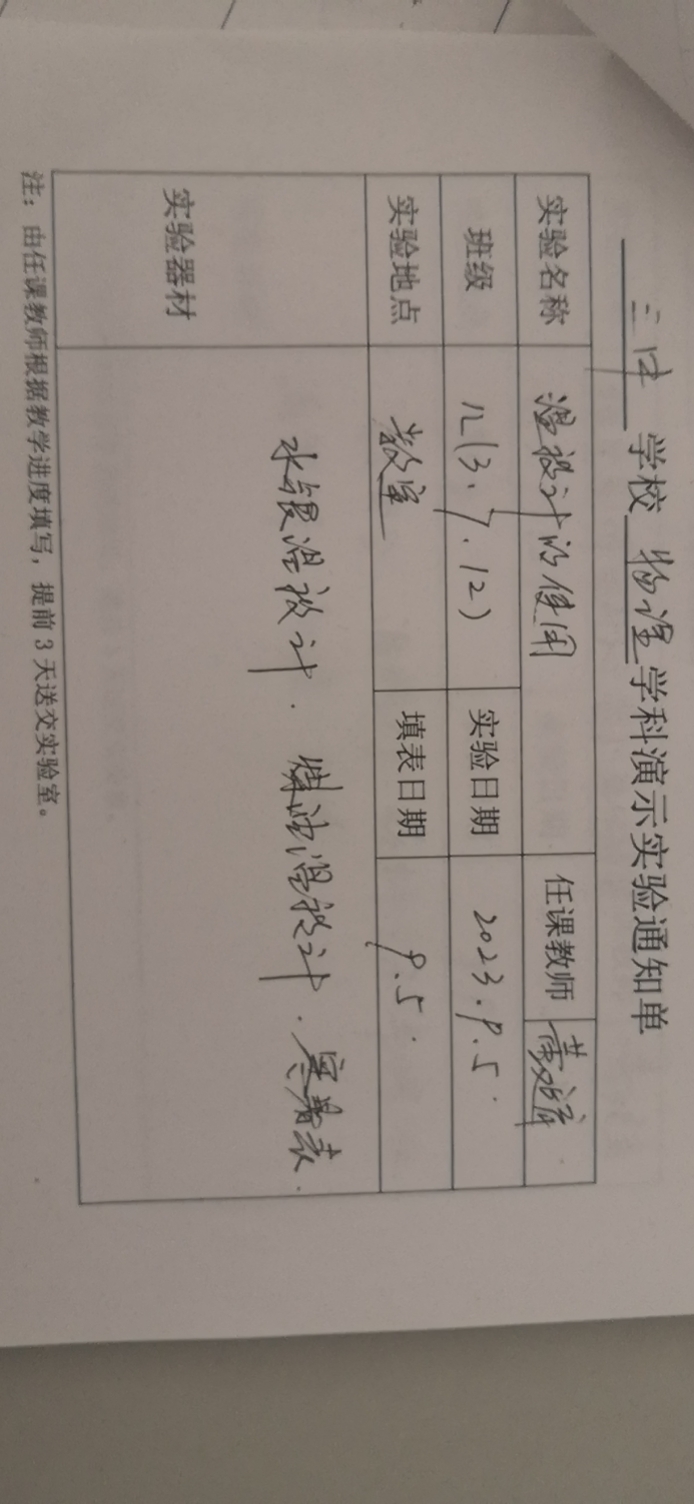 三中 学校 物理 学科演示实验通知单
实验名称 温度计的使用 任课教师
班级 八(3.7.12) 实验日期 2023.9.5.
实验地点 教室 填表日期 9.5.
实验器材 水银温度计. 煤油温度计. 寒暑表.
注：由任课教师根据教学进度填写，提前 3 天送交实验室。